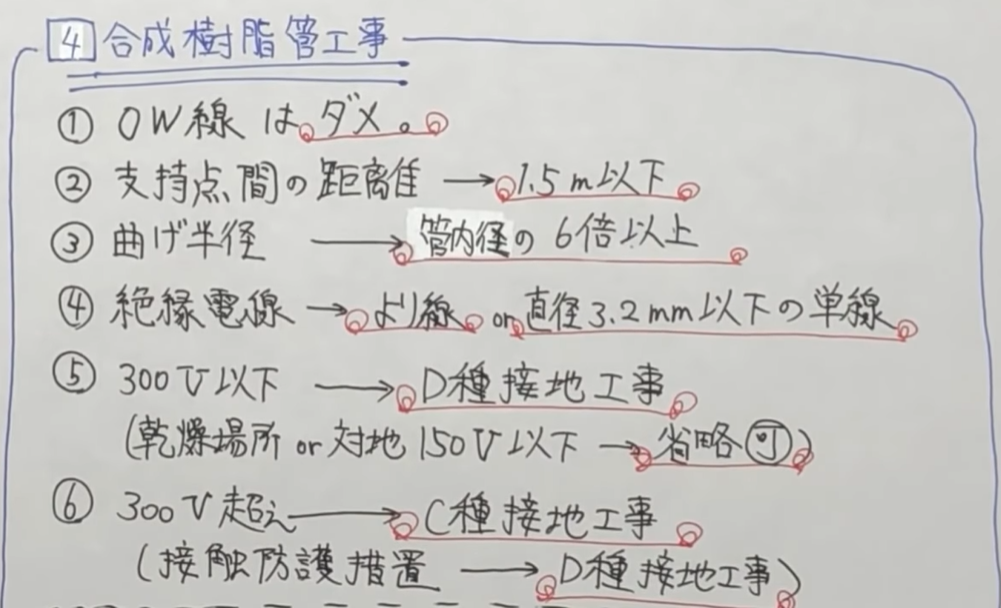 4 合成樹脂管工事
① OW線はダメ。
② 支持点間の距離 → 1.5m以下
③ 曲げ半径 → 管内径の6倍以上
④ 絶縁電線 → より線 or 直径3.2mm以下の単線
⑤ 300V以下 → D種接地工事
(乾燥場所 or 対地150V以下 → 省略可)
⑥ 300V超え → C種接地工事
(接触防護措置 → D種接地工事)